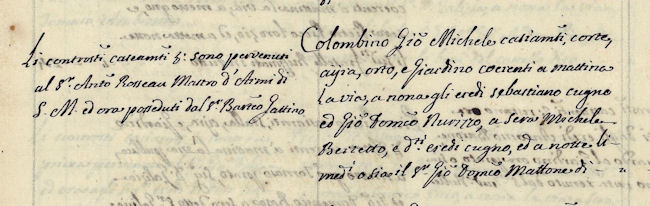 Li controsti. casamti. P. sono pervenuti
al Sr. Anto. Rosseau Mastro d'Armi di
S. M. ed ora posseduti dal Sr. Barteo Gattino
Colombino Gio. Michele casiamti, corte,
ayra, orto, e Giardino coerenti a mattina
la via, a nona gli eredi Sebastiano Cugno
ed Gio. Domco. Nurizzo, a sera Michele
Berretto, e dti. eredi cugno, ed a notte li
medi. o sia il Sr. Gio. Domco. Mattone di